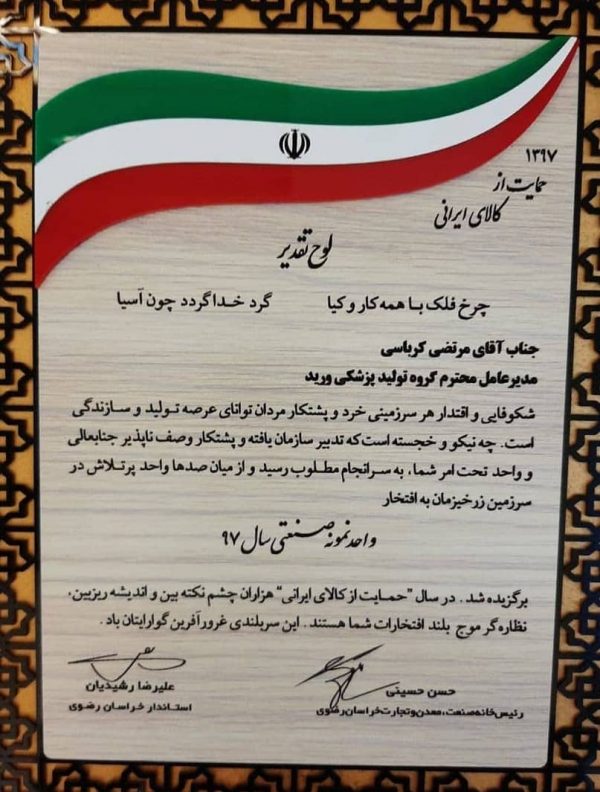 ۱۳۹۷
حمایت از
کالای ایرانی
لوح تقدیر
چرخ فلک با همه کار و کیا گرد خدا گردد چون آسیا
جناب آقای مرتضی کرباسی
مدیرعامل محترم گروه تولید پزشکی ورید
شکوفایی و اقتدار هر سرزمینی خرد و پشتکار مردان توانای عرصه تولید و سازندگی
است. چه نیکو و خجسته است که تدبیر سازمان یافته و پشتکار وصف ناپذیر جنابعالی
و واحد تحت امر شما، به سرانجام مطلوب رسید و از میان صدها واحد پرتلاش در
سرزمین زرخیزمان به افتخار
واحد نمونه صنعتی سال ۹۷
برگزیده شد. در سال "حمایت از کالای ایرانی" هزاران چشم نکته بین و اندیشه ریزبین،
نظاره گر موج بلند افتخارات شما هستند. این سربلندی غرورآفرین گوارایتان باد.
حسن حسینی
رئیس خانه صنعت، معدن و تجارت خراسان رضوی
علیرضا رشیدیان
استاندار خراسان رضوی